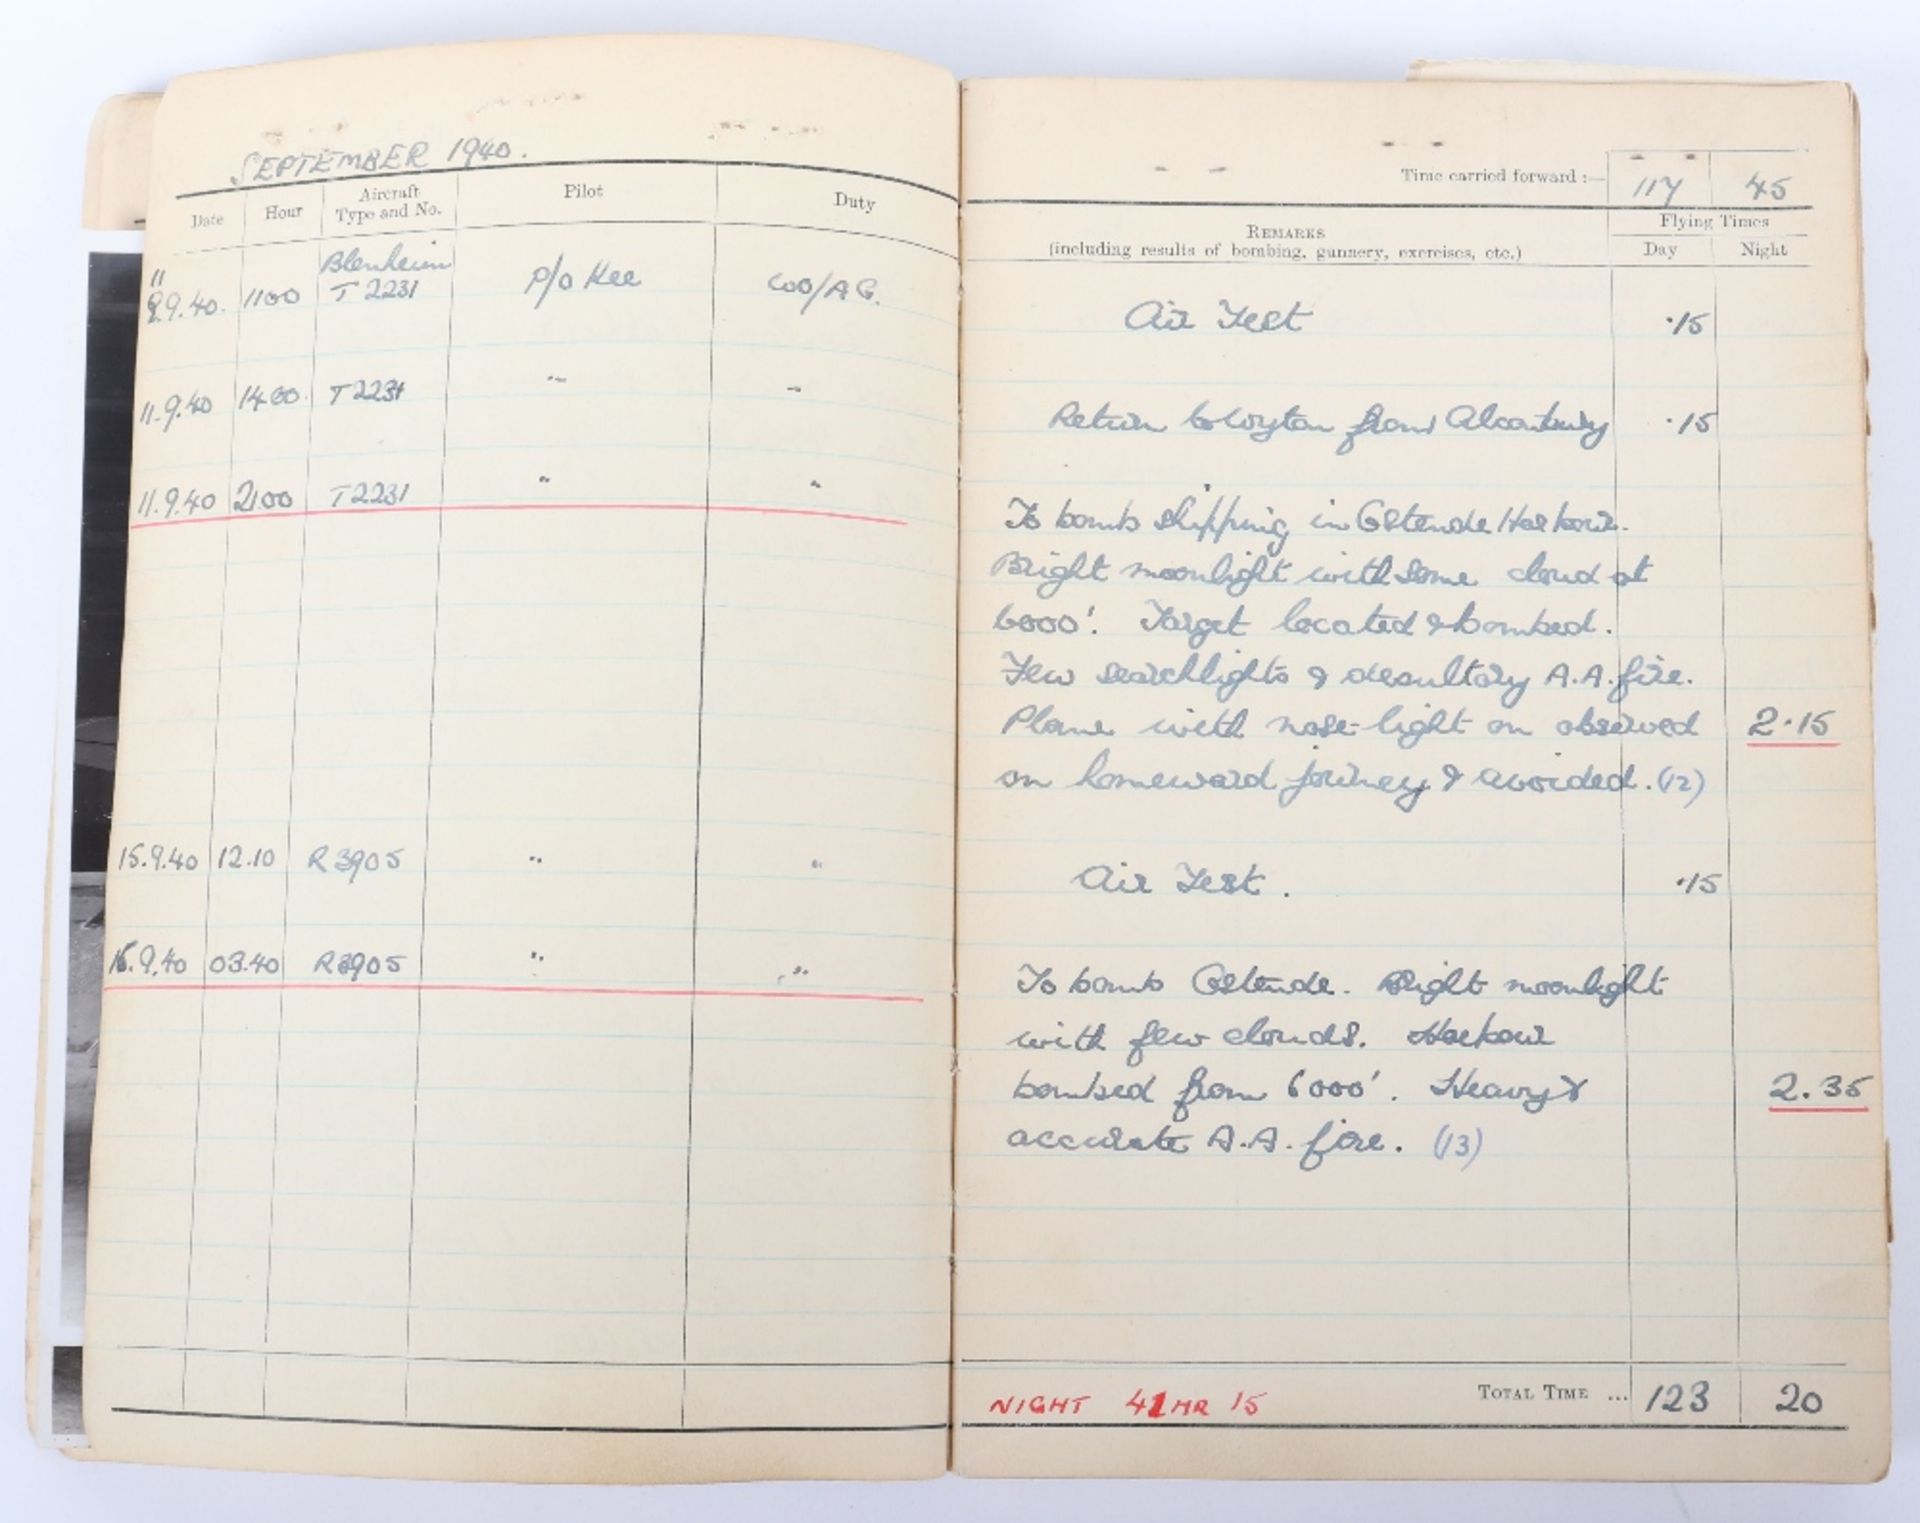 SEPTEMBER 1940.
Date Hour Aircraft Type and No. Pilot Duty
11
9.9.40. 1100 Blenheim T 2231 P/O Kee WO/AG.
11.9.40 1400 T2231 " "
11.9.40 2100 T2231 " "
15.9.40 12.10 R3905 " "
16.9.40 03.40 R3905 " "
Time carried forward :— 117 45
REMARKS
(including results of bombing, gunnery, exercises, etc.)
Flying Times
Day Night
Air Test .15
Return to Wyton from Alconbury .15
To bomb shipping in Ostende Harbour.
Bright moonlight with some cloud at
6000'. Target located & bombed.
Few searchlights & desultory A.A. fire.
Plane with nose-light on observed 2.15
on homeward journey & avoided. (12)
Air Test. .15
To bomb Ostende. Bright moonlight
with few clouds. Harbour
bombed from 6000'. Heavy & 2.35
accurate A.A. fire. (13)
NIGHT 41 HR 15 TOTAL TIME ... 123 20